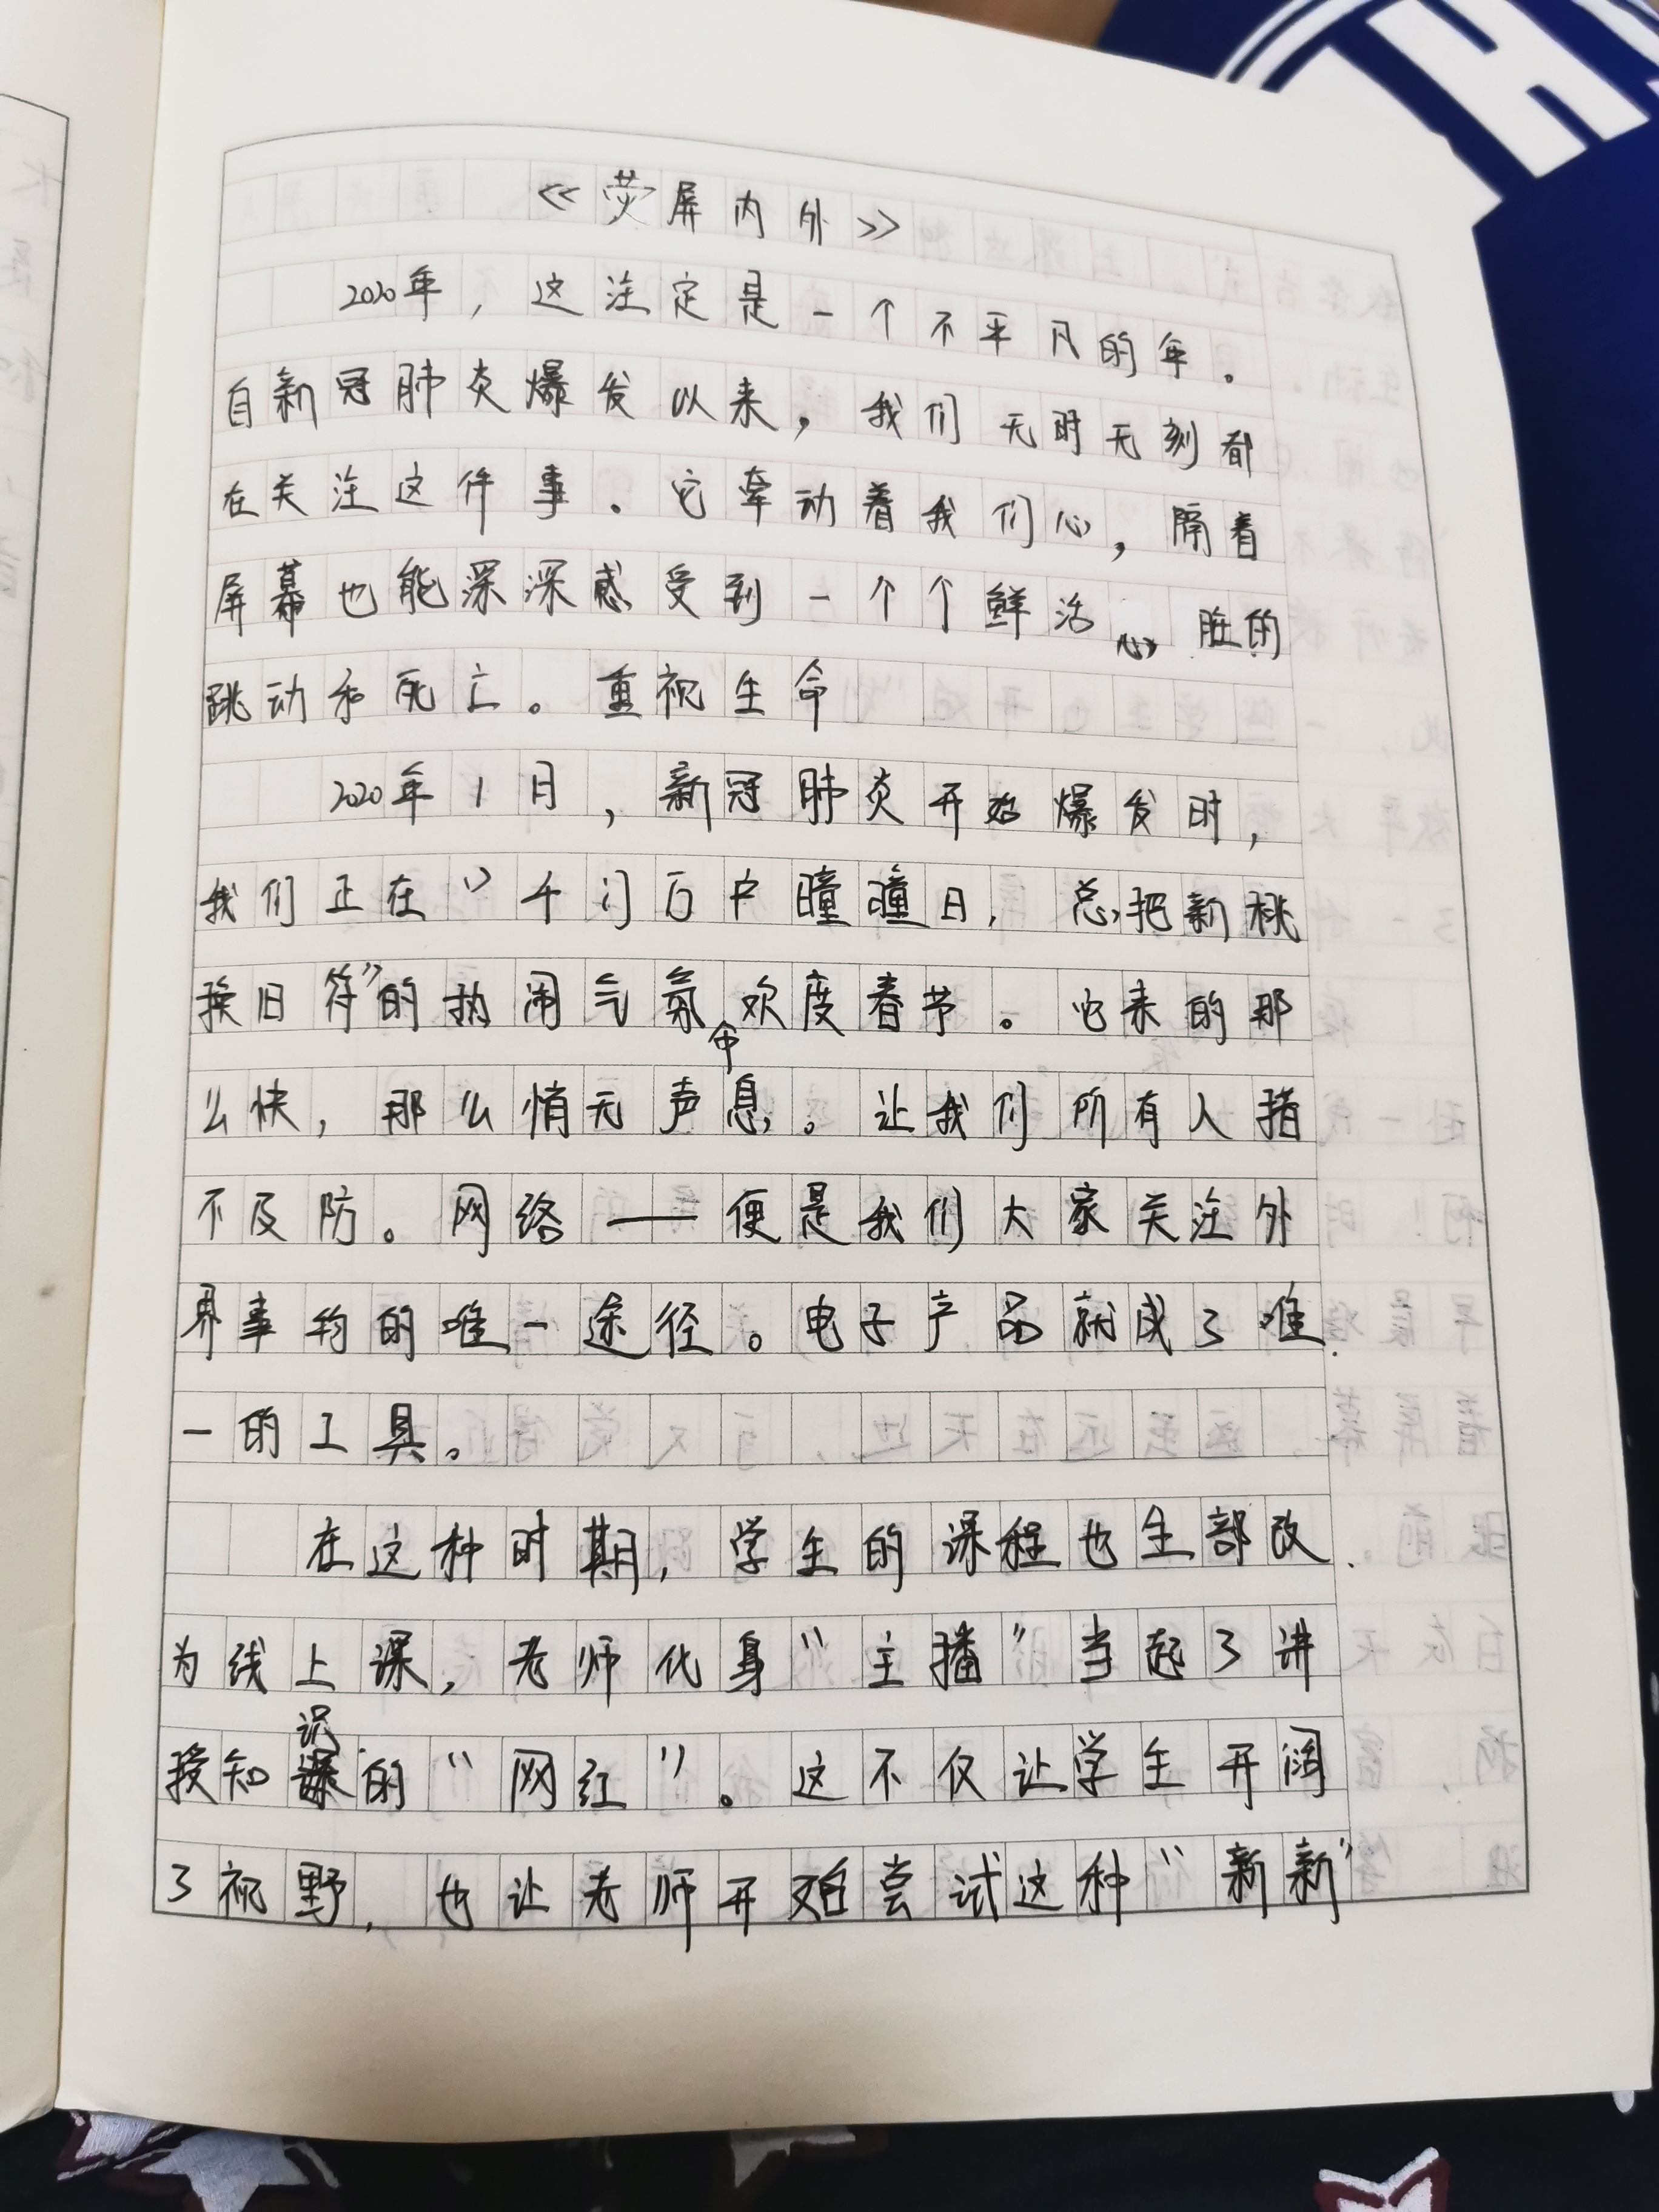 《荧屏内外》
2020年，这注定是一个不平凡的年。
自新冠肺炎爆发以来，我们无时无刻都
在关注这件事。它牵动着我们心，隔着
屏幕也能深深感受到一个个鲜活心脏的
跳动和死亡。重视生命
2020年1月，新冠肺炎开始爆发时，
我们正在“千门万户瞳瞳日，总把新桃
换旧符”的热闹气氛中欢度春节。它来的那
么快，那么悄无声息。让我们所有人措
不及防。网络——便是我们大家关注外
界事物的唯一途径。电子产品就成了唯
一的工具。
在这种时期，学生的课程也全部改
为线上课，老师化身“主播”当起了讲
授知识的“网红”。这不仅让学生开阔
了视野，也让老师开始尝试这种“新新”
TH